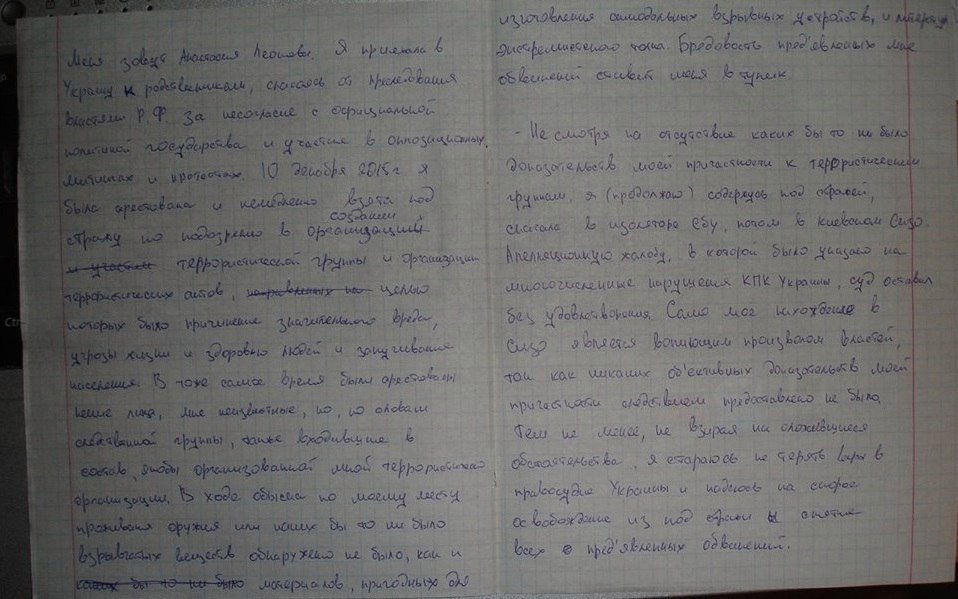 Меня зовут Анастасия Леонова. Я приехала в
Украину к родственникам, спасаясь от преследования
властями Р.Ф. за несогласие с официальной
политикой государства и участие в оппозиционных
митингах и протестах. 10 декабря 2015г я
была арестована и немедленно взята под
создании
стражу по подозрению в организации
и участии террористической группы и организации
террористических актов, направленных на целью
которых было причинение значительного вреда,
угрозы жизни и здоровью людей и запугивание
населения. В тоже самое время были арестованы
некие лица, мне неизвестные, но, по словам
следственной группы, также входившие в
состав, якобы организованной мной террористической
организации. В ходе обыска по моему месту
проживания оружия или каких бы то ни было
взрывчатых веществ обнаружено не было, как и
каких бы то ни было материалов, пригодных для
изготовления самодельных взрывных устройств, и литературы
экстремистского толка. Бредовость пред'явленных мне
обвинений ставит меня в тупик.
- Не смотря на отсутствие каких бы то ни было
доказательств моей причастности к террористическим
группам, я (продолжаю) содержусь под стражей,
сначала в изоляторе СБУ, потом в киевском Сизо.
Апелляционную жалобу, в которой было указано на
многочисленные нарушения КПК Украины, суд оставил
без удовлетворения. Само мое нахождение в
Сизо является вопиющим произволом властей,
так как никаких об'ективных доказательств моей
причастности следствием предоставлено не было.
Тем не менее, не взирая на сложившиеся
обстоятельства, я стараюсь не терять веры в
правосудие Украины и надеюсь на скорое
освобождение из под стражи и снятие
всех пред'явленных обвинений.